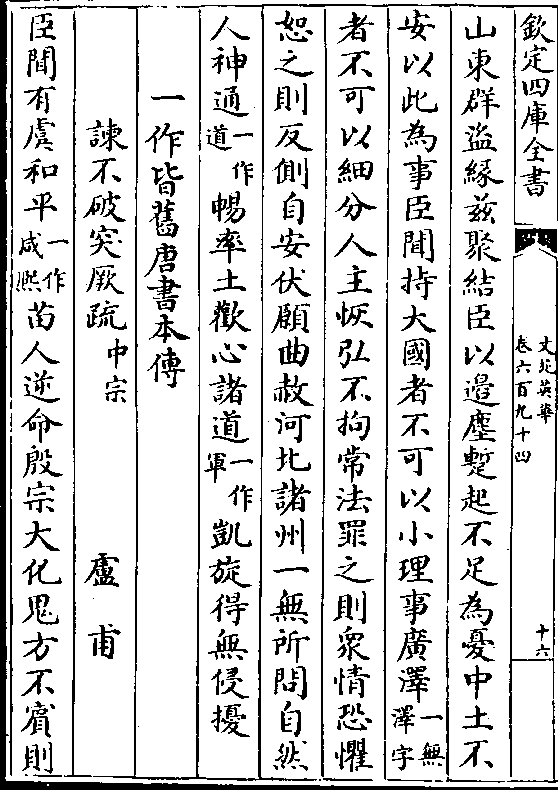 欽定四庫全書
文苑英華
卷六百九十四
十六
山東群盜緣兹聚結臣以邉塵蹔起不足為憂中土不
安以此為事臣聞持大國者不可以小理事廣澤一無澤字
者不可以細分人主恢弘不拘常法罪之則衆情恐懼
恕之則反側自安伏願曲赦河北諸州一無所問自然
人神通一作道暢率土歡心諸道一作軍凱旋得無侵擾
一作皆舊唐書本傳
諫不破突厥疏中宗 盧甫
臣聞有虞和平一作咸熈苗人逆命殷宗大化鬼方不賓則